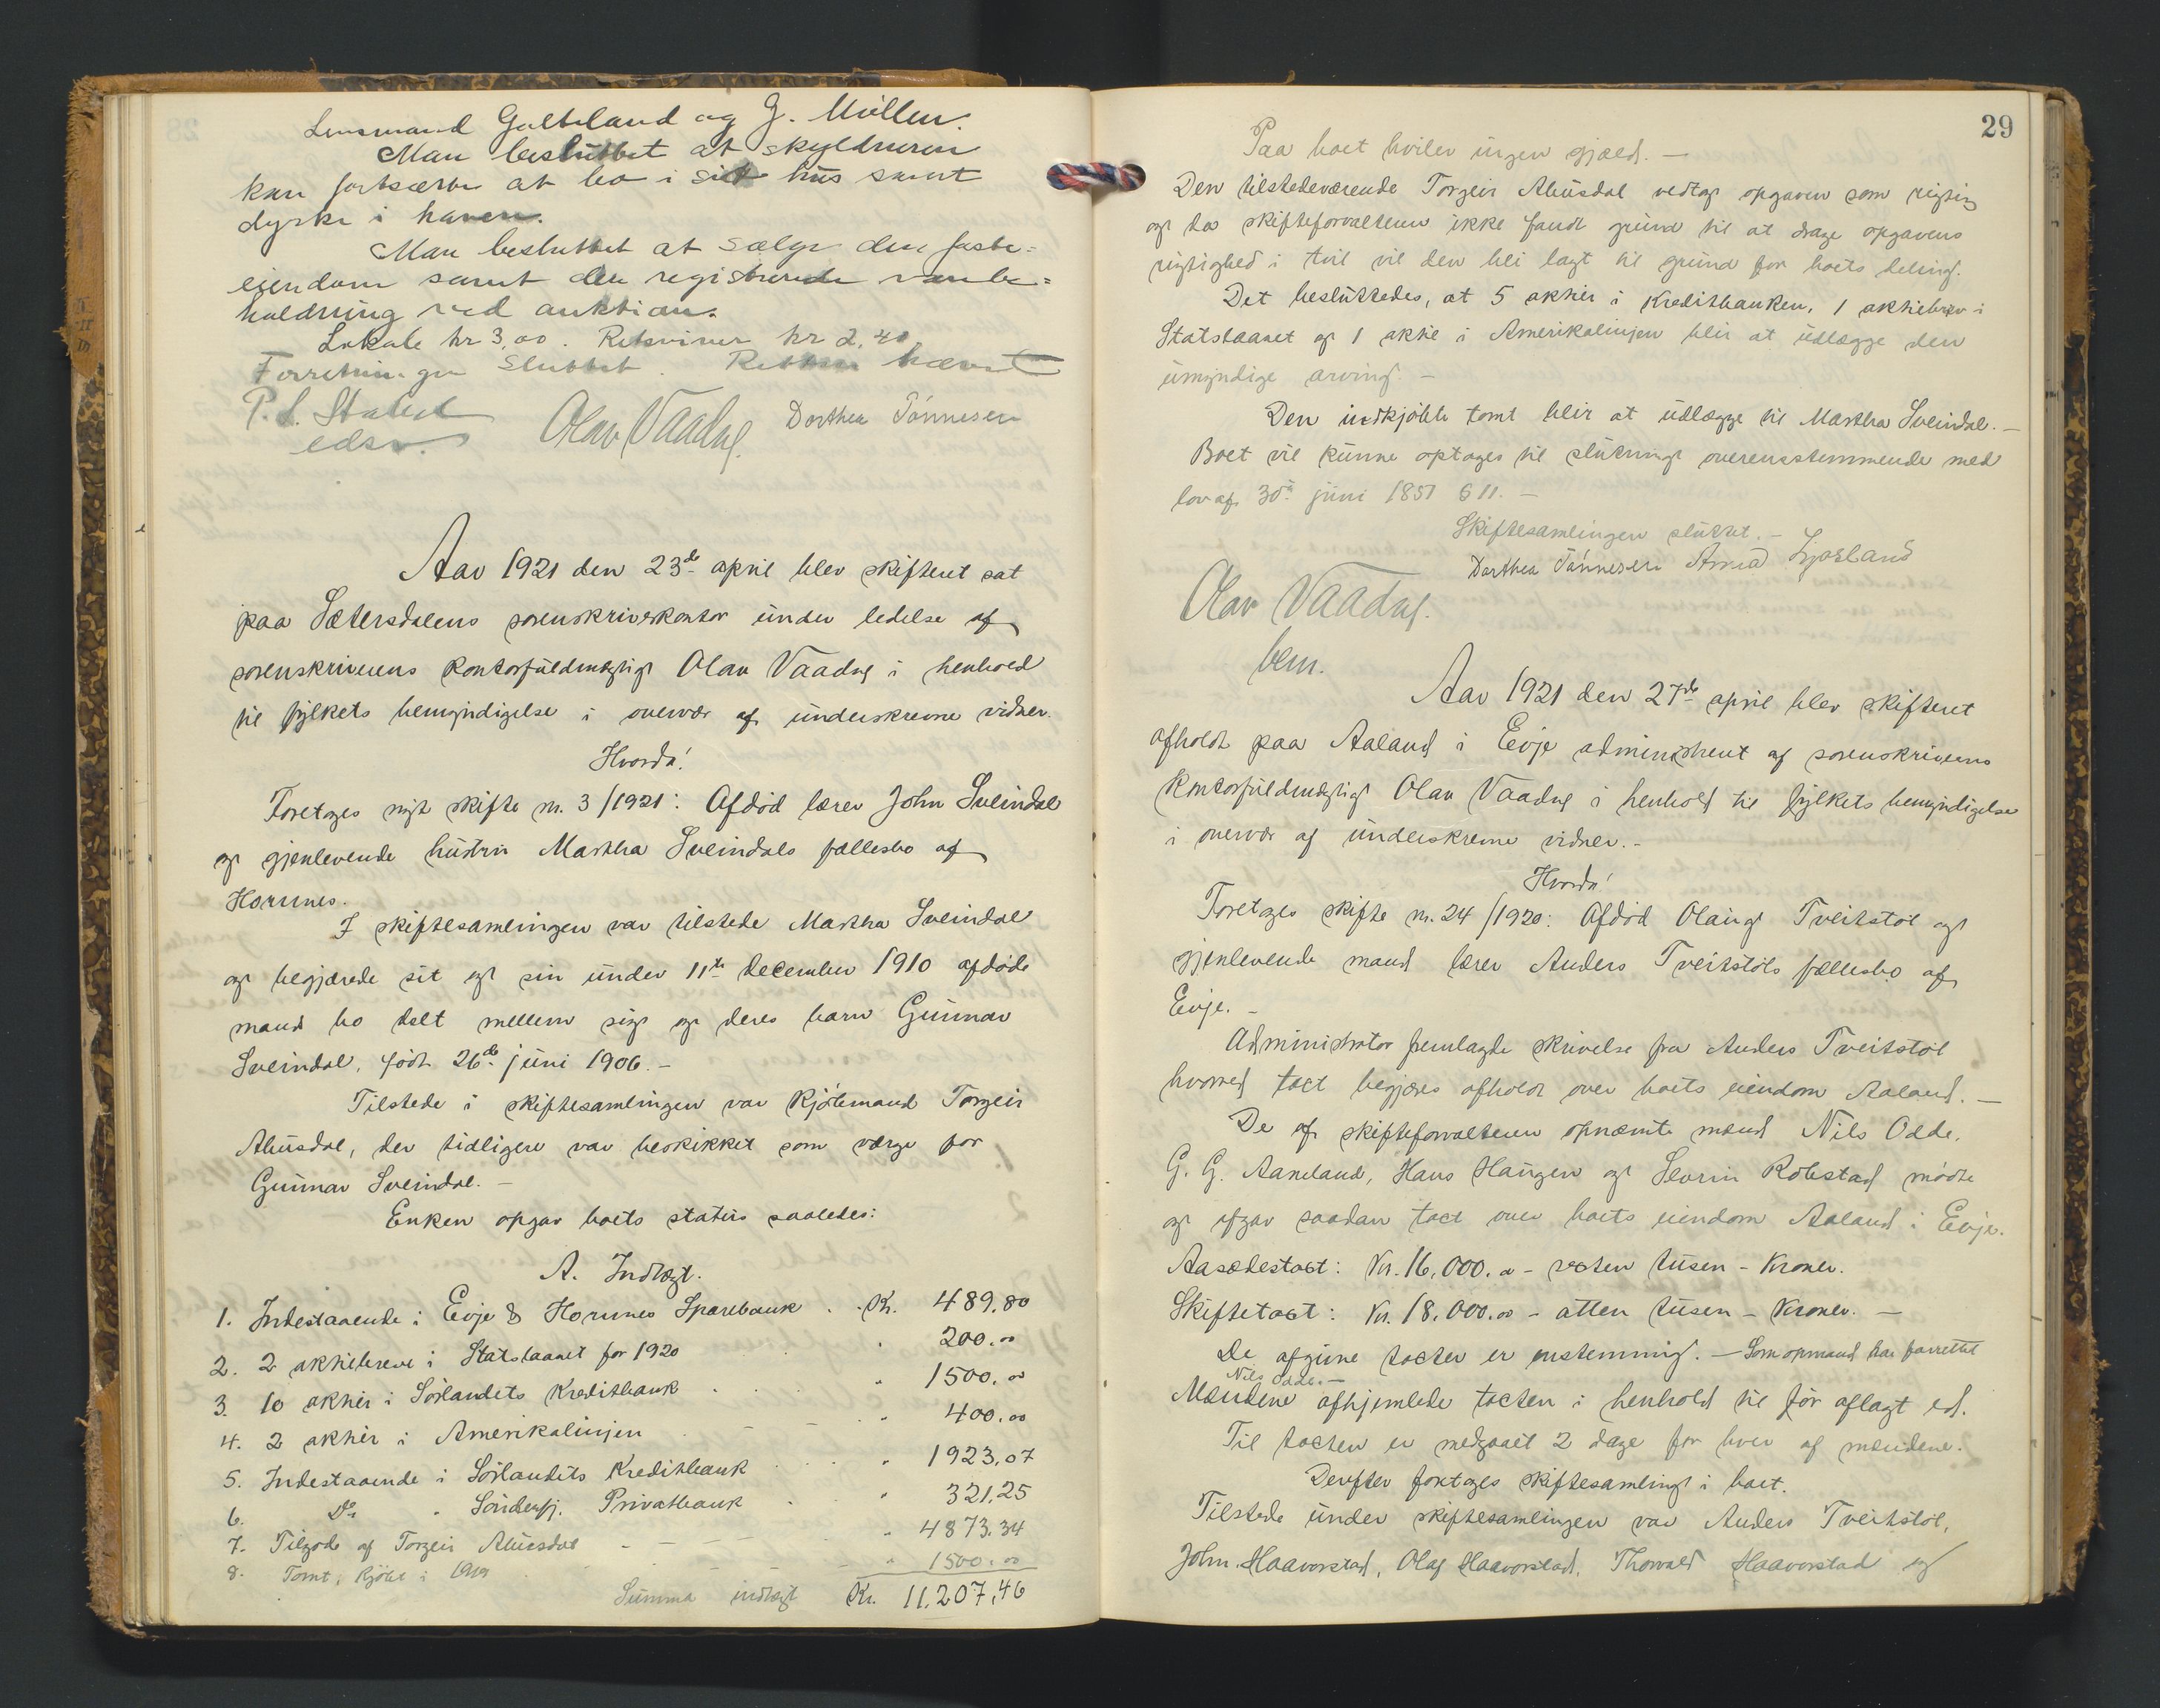 Lensmand Galteland og G. Müller.
Man besluttet at skyldneren
kan fortsætte at bo i sit hus samt
dyrke i haven.
Man besluttet at sælge den faste-
eiendom samt den registrerede varebe-
holdning ved auktion.
Lokale kr 3,00. Retsviner kr 2,40
Forretningen sluttet. Retten hævet
P. S. Stabel
edsv.
Olav Vaadng.
Dorthea Tönnesen
Aar 1921 den 23de april blev skifteret sat
paa Sætersdalens sorenskriverkontor under ledelse af
sorenskriverens kontorfuldmægtig Olav Vaadng i henhold
til fylkets bemyndigelse i overvær af underskrevne vidner.
Hvorda!
Foretages nyt skifte nr. 3/1921: Afdöd lærer John Sveindal
og gjenlevende hustru Martha Sveindals fællesbo af
Hornnes.
I skiftesamlingen var tilstede Martha Sveindal
og begjærede sit og sin under 11te december 1910 afdöde
mand bo delt mellem sig og deres barn Gunnar
Sveindal, födt 26de juni 1906. –
Tilstede i skiftesamlingen var kjöbmand Torgeir
Abusdal, der tidligere var beskikket som værge for
Gunnar Sveindal. –
Enken opgav boets status saaledes:
A. Indtægt.
1. Indestaaende i Evje & Hornnes Sparebank . . Kr. 489.80
2. 2 aktiebreve i Statslaanet for 1920 " 200.00
3. 10 aktier i Sörlandets Kreditbank " 1500.00
4. 2 aktier i Amerikalinjen " 400.00
5. Indestaaende i Sörlandets Kreditbank " 1923,07
6. Do " Sönderfj. Privatbank " 321,25
7. Tilgode af Torgeir Abusdal " 4873.34
8. Tomt, kjöbt i 1919 " 1500.00
Summa indtægt Kr. 11.207,46
29
Paa boet hviler ingen gjæld. –
Den tilstedeværende Torgeir Abusdal vedtog opgaven som rigtig
og da skifteforvalteren ikke fandt grund til at drage opgavens
rigtighed i tvil vil den bli lagt til grund for boets deling.
Det besluttedes, at 5 aktier i Kreditbanken, 1 aktiebrev i
Statslaanet og 1 aktie i Amerikalinjen blir at udlægge den
umyndige arving. –
Den indkjöbte tomt blir at udlægge til Martha Sveindal. –
Boet vil kunne optages til slutning overensstemmende med
lov af 30te juni 1851 § 11. –
Skiftesamlingen sluttet. –
Dorthea Tönnesen Anna Ljosland
Olav Vaadng.
bem.
Aar 1921 den 27de april blev skifteret
afholdt paa Aaland i Evje administreret af sorenskriverens
kontorfuldmægtig Olav Vaadng i henhold til fylkets bemyndigelse
i overvær af underskrevne vidner. –
Hvorda!
Foretages skifte nr. 24/1920: Afdöd Olaug Tveitstöl og
gjenlevende mand lærer Anders Tveitstöls fællesbo af
Evje. –
Administrator fremlagde skrivelse fra Anders Tveitstöl
hvorved taxt begjæres afholdt over boets eiendom Aaland. –
De af skifteforvalteren opnævnte mænd Nils Odde,
G. G. Aaneland, Hans Haugen og Sevrin Robstad mödte
og afgav saadan taxt over boets eiendom Aaland i Evje.
Aasædestaxt: Kr. 16.000.00 – sexten tusen – kroner.
Skiftetaxt: Kr. 18.000.00 – atten tusen – kroner. –
De afgivne taxter er enstemmig. – Som opmand har forrettet
Nils Odde. –
Mændene afhjemlede taxten i henhold til för aflagt ed.
Til taxten er medgaaet 2 dage for hver af mændene.
Derefter foretages skiftesamling i boet.
Tilstede under skiftesamlingen var Anders Tveitstöl,
John Haavorstad, Olaf Haavorstad, Thorvald Haavorstad og